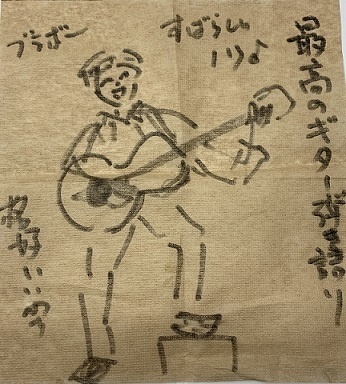 最高のギター弾き語り
すばらしい
ノリ♪
ブラボー
格好いいね